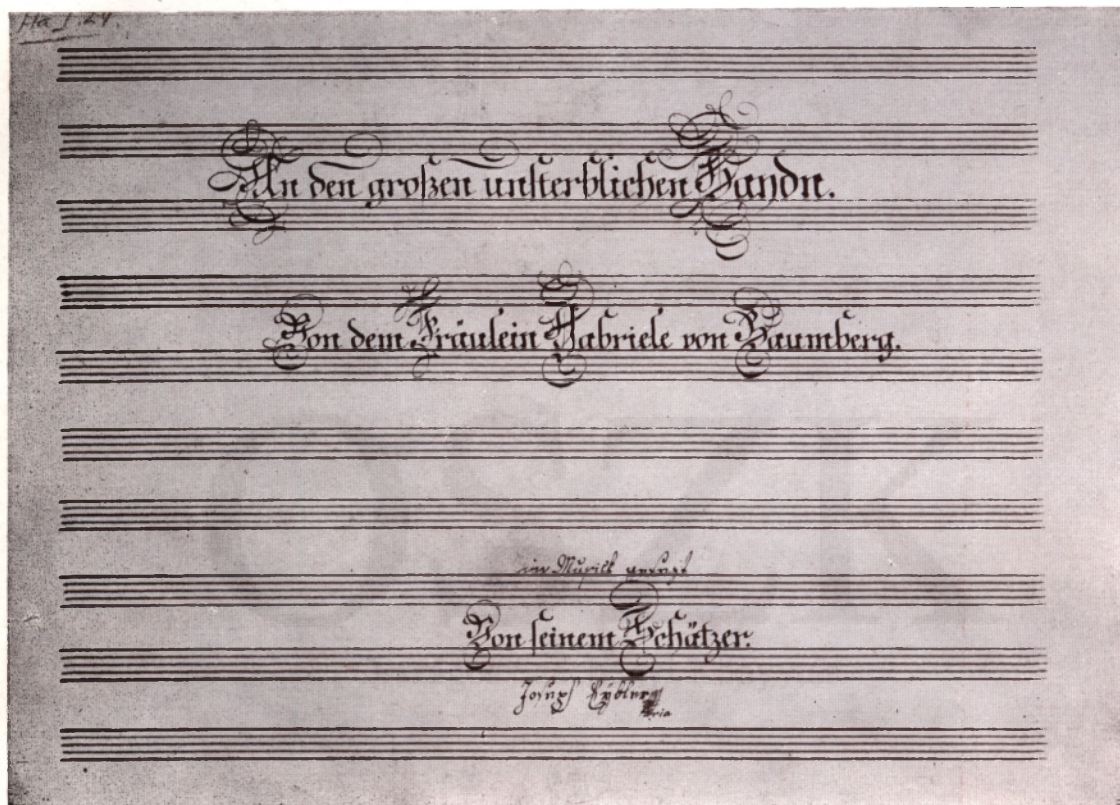 Ha I. 24.
An den großen unsterblichen Haydn.
Von dem Fräulein Gabriele von Baumberg.
in Musick gesezt
Von seinem Schätzer.
Joseph Eybler
OSZK